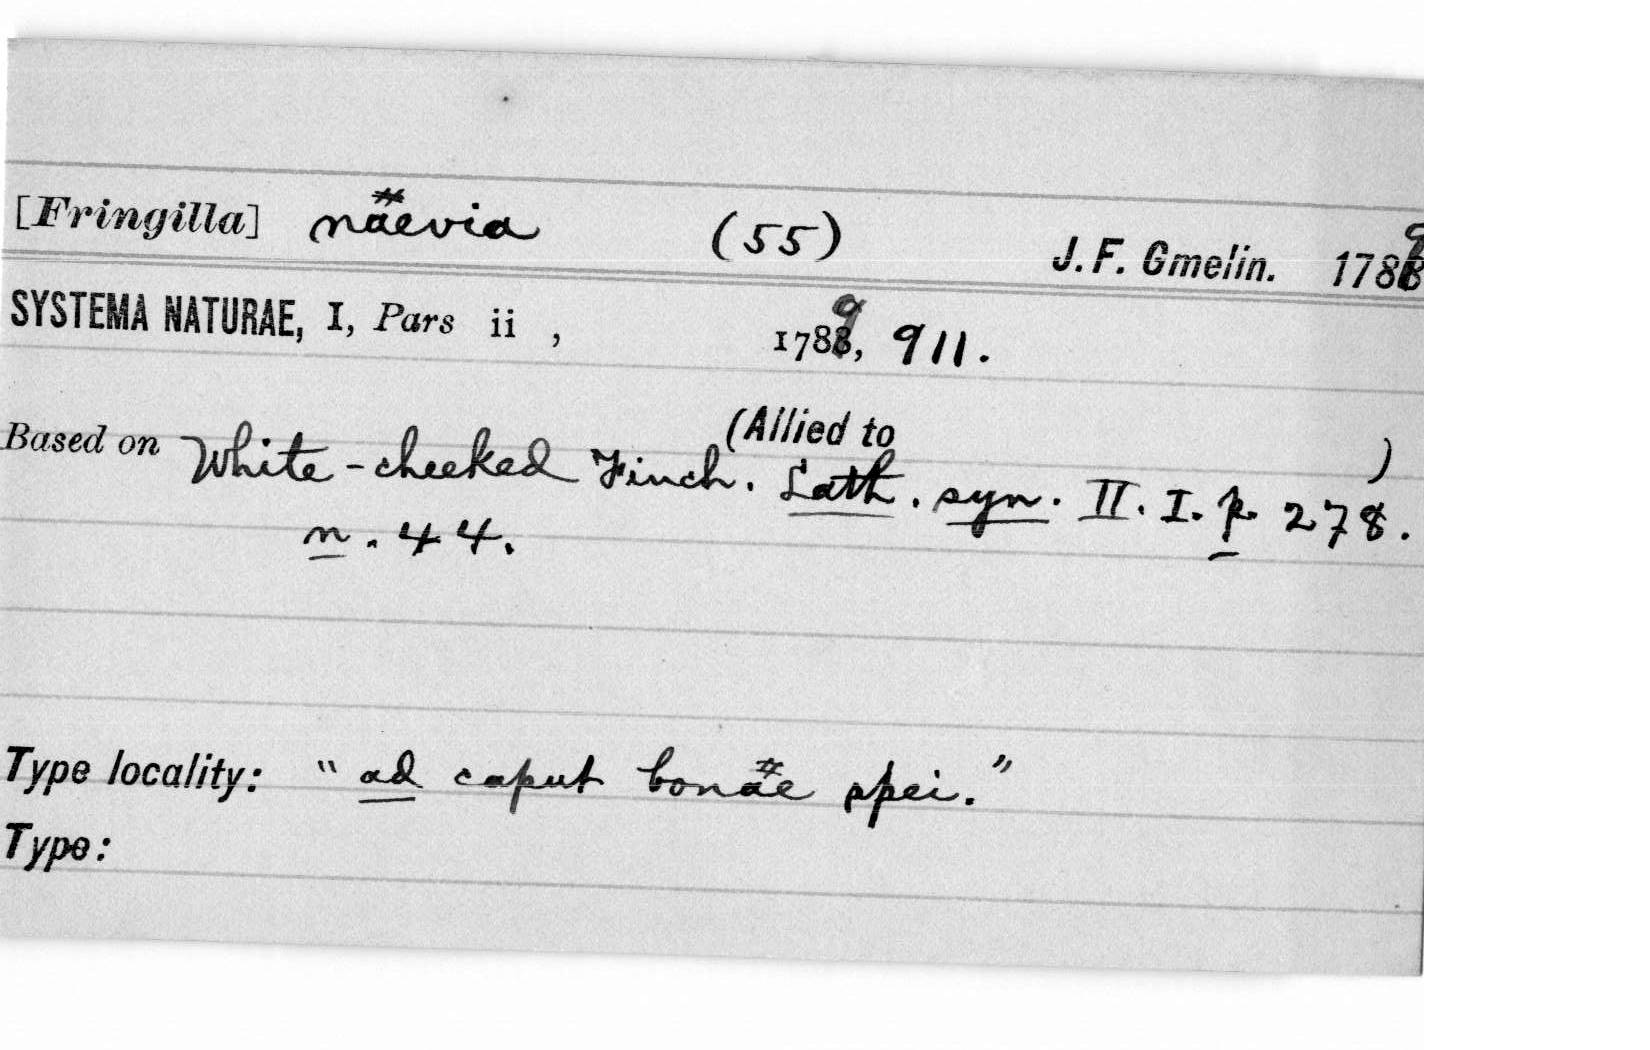 [Fringilla] naevia (55) J. F. Gmelin. 1789
SYSTEMA NATURAE, I, Pars ii , 1789, 911.
(Allied to )
Based on White-cheeked Finch. Lath. syn. II. I. p. 278.
n. 44.
Type locality: "ad caput bonae spei."
Type: